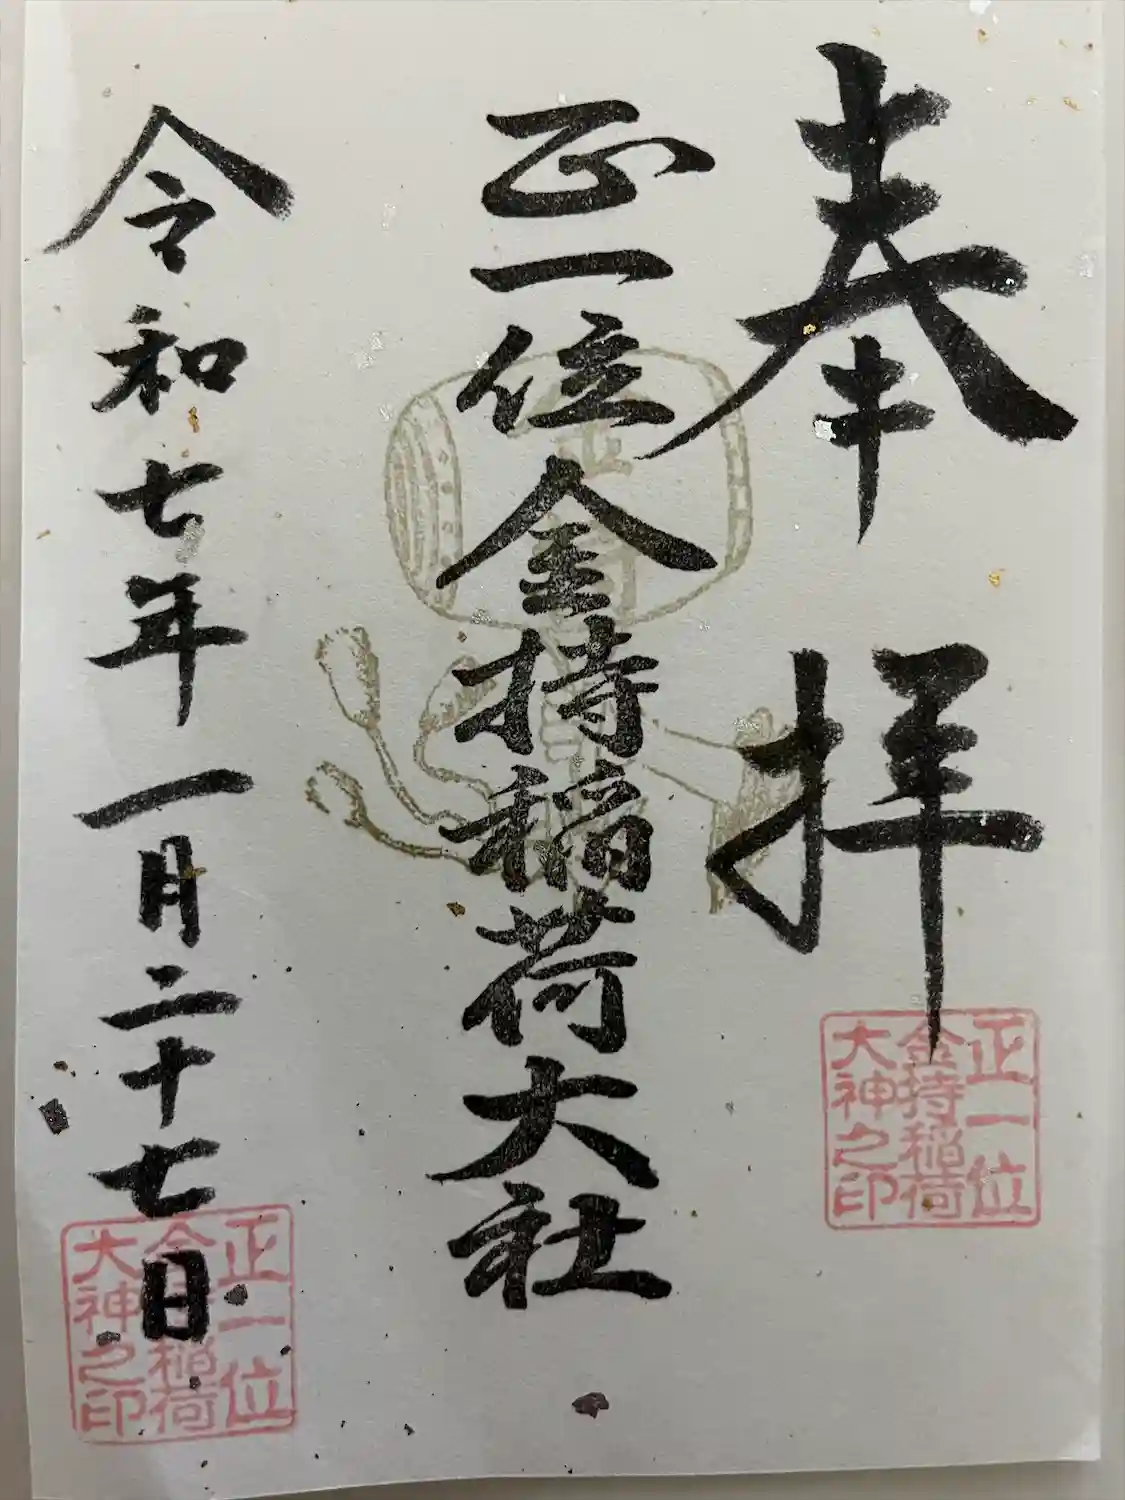 奉拝
正一位金持稲荷大社
令和七年一月二十七日
正一位
金持稲荷
大神之印
正一位
金持稲荷
大神之印